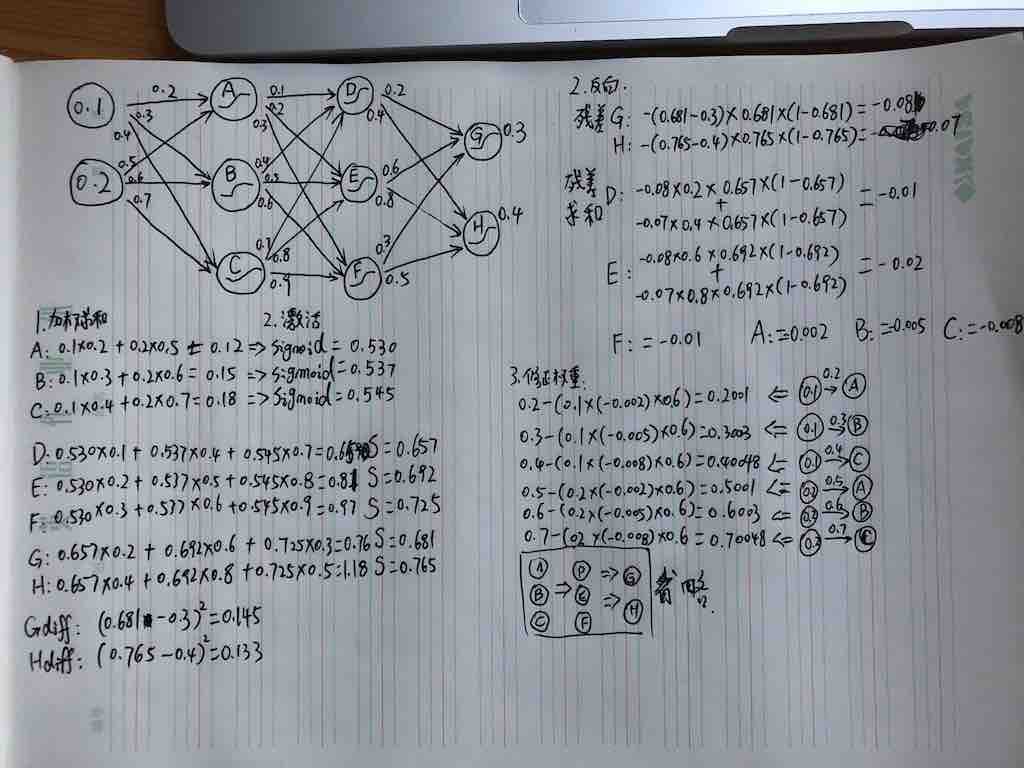 0.1
0.2
0.2
0.3
0.4
0.5
0.6
0.7
A
B
C
0.1
0.2
0.3
0.4
0.5
0.6
0.7
0.8
0.9
D
E
F
0.2
0.4
0.6
0.8
0.3
0.5
G 0.3
H 0.4
1.加权求和
2.激活
A: 0.1×0.2 + 0.2×0.5 = 0.12 => sigmoid = 0.530
B: 0.1×0.3 + 0.2×0.6 = 0.15 => sigmoid = 0.537
C: 0.1×0.4 + 0.2×0.7 = 0.18 => sigmoid = 0.545
D: 0.530×0.1 + 0.537×0.4 + 0.545×0.7 = 0.65 S = 0.657
E: 0.530×0.2 + 0.537×0.5 + 0.545×0.8 = 0.81 S = 0.692
F: 0.530×0.3 + 0.537×0.6 + 0.545×0.9 = 0.97 S = 0.725
G: 0.657×0.2 + 0.692×0.6 + 0.725×0.3 = 0.76 S = 0.681
H: 0.657×0.4 + 0.692×0.8 + 0.725×0.5 = 1.18 S = 0.765
Gdiff: (0.681 - 0.3)² = 0.145
Hdiff: (0.765 - 0.4)² = 0.133
2.反向:
残差 G: -(0.681-0.3)×0.681×(1-0.681) = -0.08
H: -(0.765-0.4)×0.765×(1-0.765) = -0.07
残差求和
D: -0.08×0.2×0.657×(1-0.657)
+
-0.07×0.4×0.657×(1-0.657)
= -0.01
E: -0.08×0.6×0.692×(1-0.692)
+
-0.07×0.8×0.692×(1-0.692)
= -0.02
F: = -0.01 A: = -0.002 B: = -0.005 C: = -0.008
3.修正权重:
0.2-(0.1×(-0.002)×0.6) = 0.2001 <= 0.1 0.2 → A
0.3-(0.1×(-0.005)×0.6) = 0.3003 <= 0.1 0.3 → B
0.4-(0.1×(-0.008)×0.6) = 0.40048 <= 0.1 0.4 → C
0.5-(0.2×(-0.002)×0.6) = 0.5001 <= 0.2 0.5 → A
0.6-(0.2×(-0.005)×0.6) = 0.6003 <= 0.2 0.6 → B
0.7-(0.2×(-0.008)×0.6 = 0.70048 <= 0.2 0.7 → C
A D => G
B → E => H
C F
省略